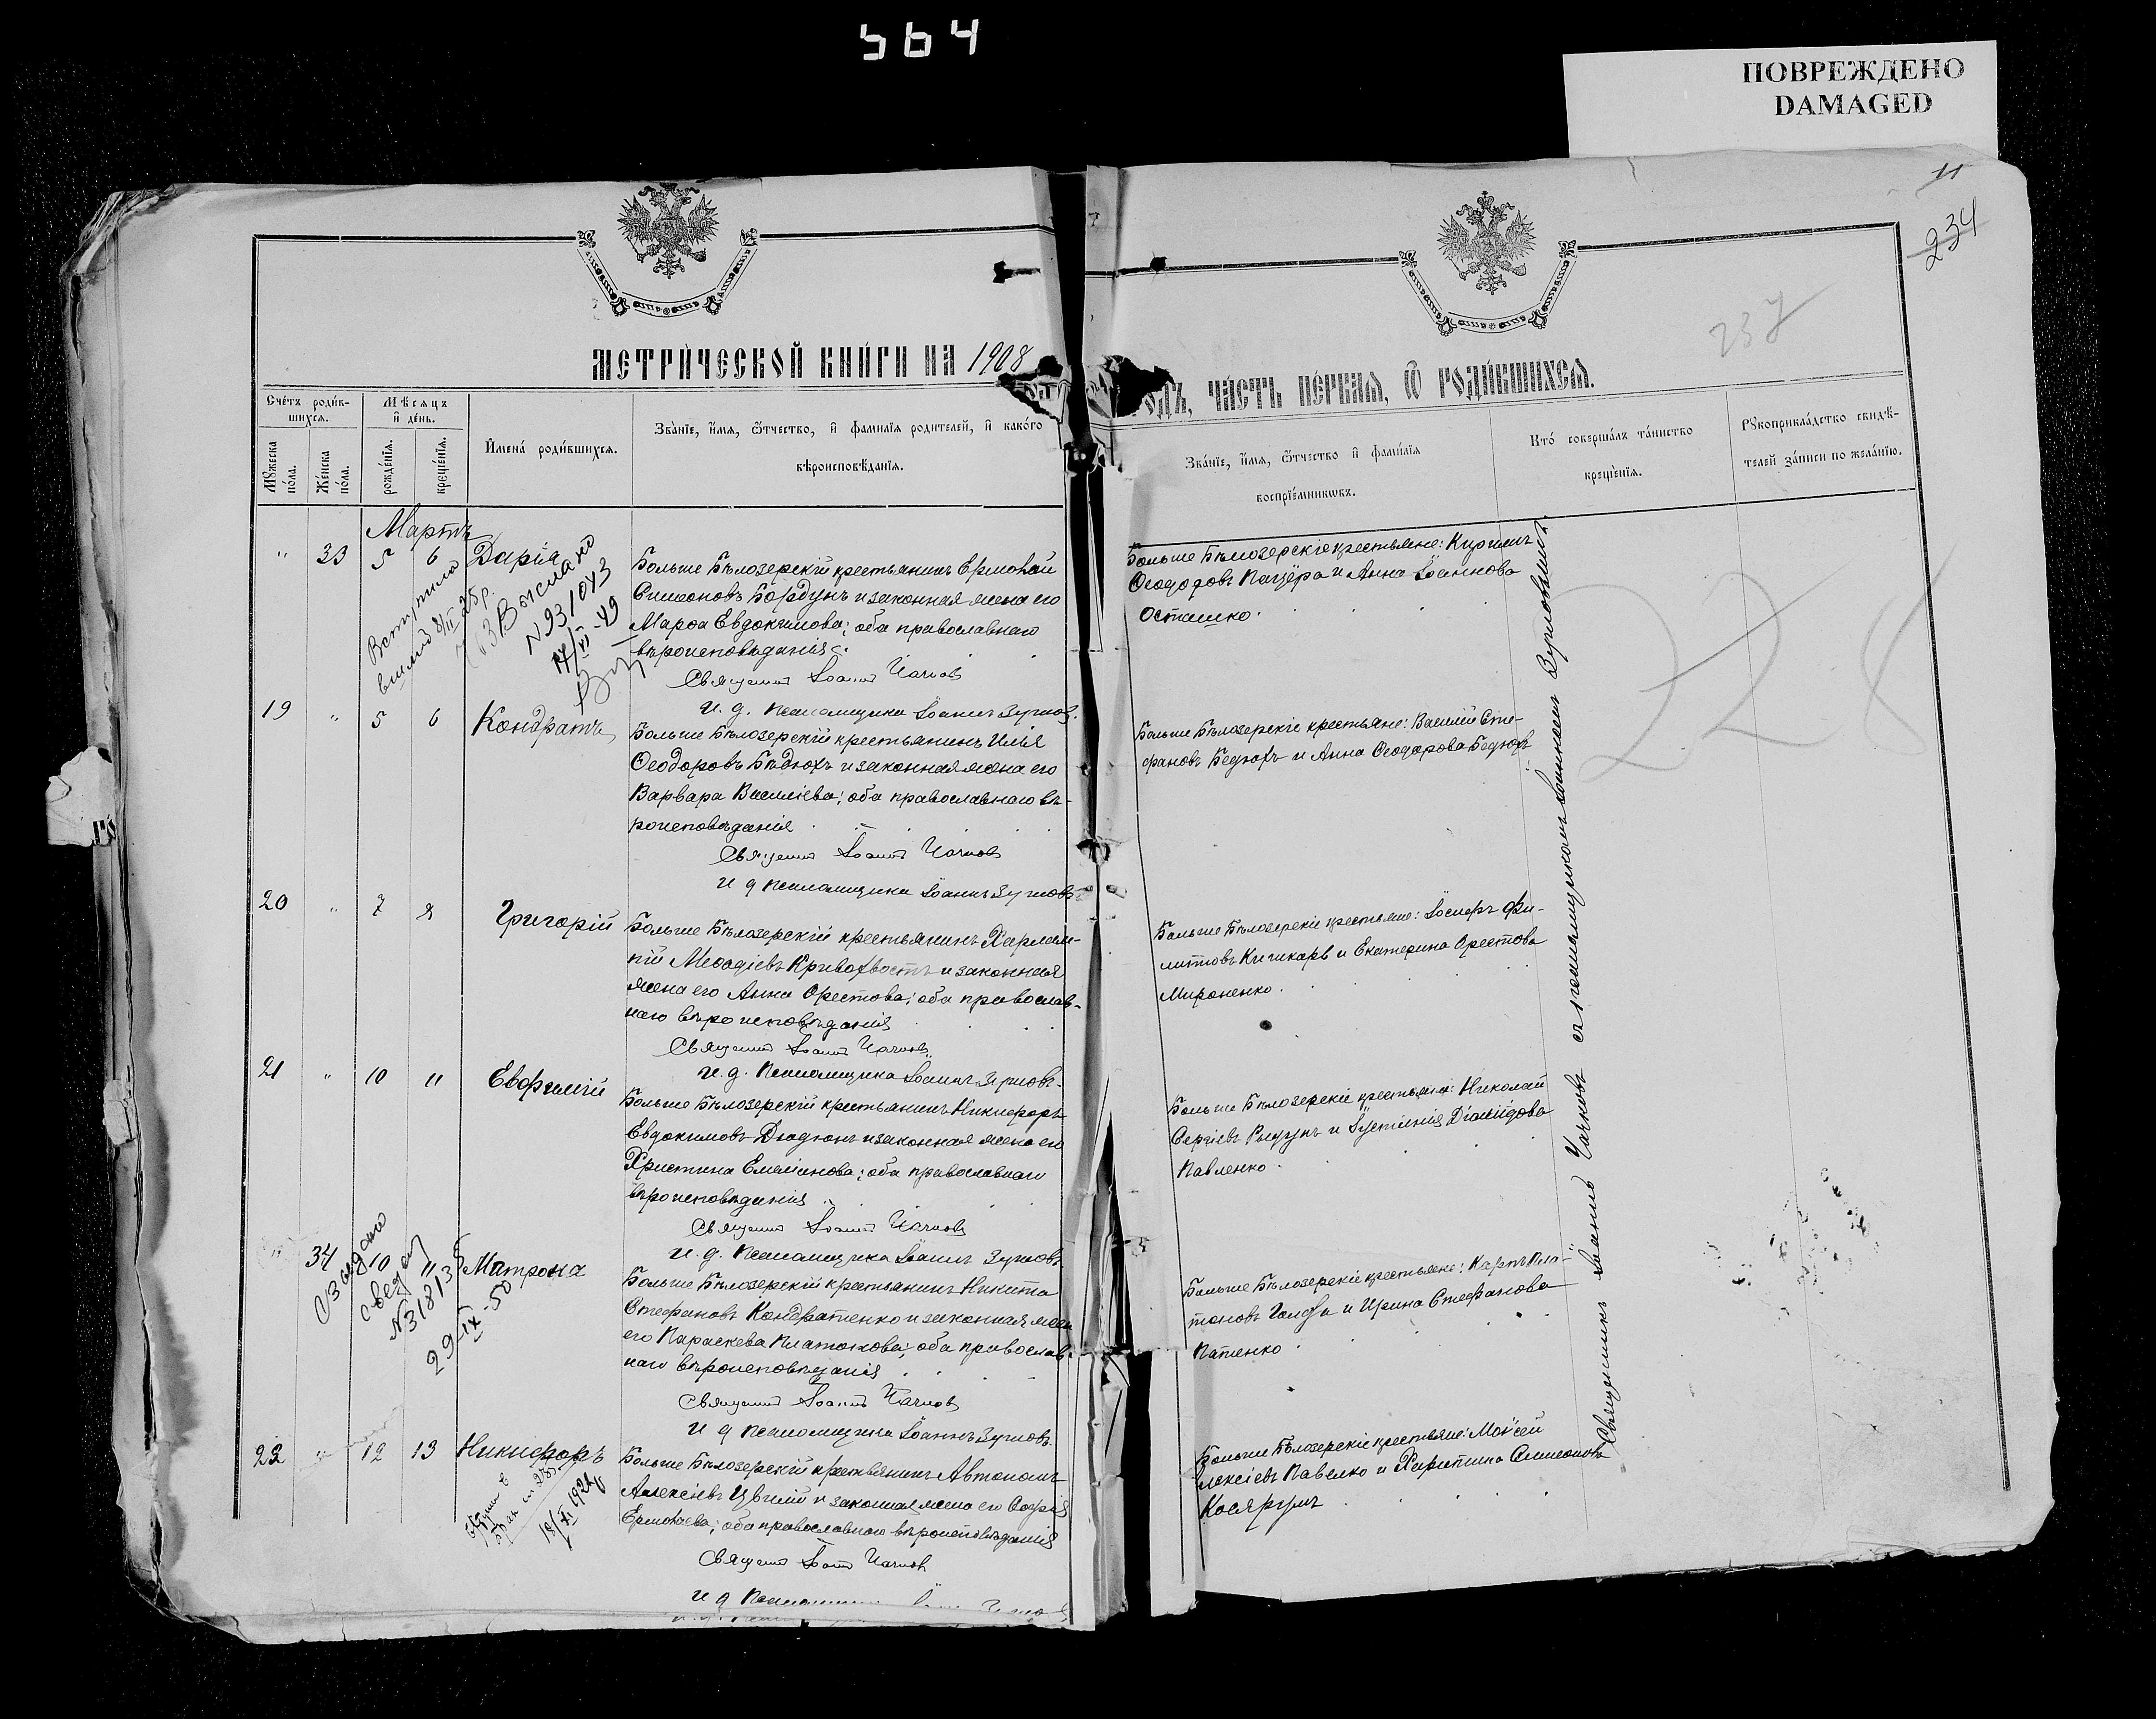 564
ПОВРЕЖДЕНО
DAMAGED
11
234
237
МЕТРИ́ЧЕСКОЙ КНИ́ГИ НА 1908
ГОДЪ, ЧА́СТЬ ПЕ́РВАѦ, Ѿ РОДИ́ВШИХСѦ.
Сче́тъ роди́в-
шихсѧ.
Мѣ́сѧцъ
и҆ де́нь.
Мꙋ́жеска
по́ла.
Же́нска
по́ла.
рожде́нїѧ.
креще́нїѧ.
И҆мена̀ роди́вшихсѧ.
Зва́нїе, и҆́мѧ, ѻ҆́тчество, и҆ фами́лїѧ роди́телей, и҆ како́гѡ
вѣроисповѣ́данїѧ.
Зва́нїе, и҆́мѧ, ѻ҆́тчество и҆ фами́лїѧ
воспрїе́мникѡвъ.
Кто̀ соверша́лъ та́инство
креще́нїѧ.
Рꙋкоприкла́дство свидѣ́-
телей за́писи по жела́нїю.
Мартъ
" 33 5 6 Дарія
Больше Бѣлозерскій крестьянинъ Ермолай
Симеоновъ Бордунъ и законная жена его
Марѳа Евдокимова; оба православнаго
вѣроисповѣданія.
Священн Іоанн Чачков
и. д. Псаломщика Іоаннъ Зуриов
Больше Бѣлозерскіе крестьяне: Кириллъ
Ѳеодоровъ Пащера и Анна Іоаннова
Осташко.
Вступила
Выслано
N 931043
17/VI-49
19 " 5 6 Кондратъ
Больше Бѣлозерскій крестьянинъ Илія
Ѳеодоровъ Бѣдюхъ и законная жена его
Варвара Василіева; оба православнаго вѣ-
роисповѣданія
Священн Іоанн Чачков
и д Псаломщика Іоаннъ
Больше Бѣлозерскіе крестьяне: Василій Сте-
фановъ Бедюхъ и Анна Ѳеодорова Бедюхъ
224
20 " 7 8 Григорій
Больше Бѣлозерскій крестьянинъ Харлам-
пій Меѳодіевъ Кривохвостъ и законная
жена его Анна Орестова; оба православ-
наго вѣроисповѣданія
Священн Іоанн Чачков
и. д. Псаломщика Іоаннъ
Больше Бѣлозерскіе крестьяне: Іосифъ Фи-
липповъ и Екатерина Орестова
Мироненко.
21 " 10 11 Евфимій
Больше Бѣлозерскій крестьянинъ Никифоръ
Евдокимовъ Дюдюнъ и законная жена его
Христина Емеліанова; оба православнаго
вѣроисповѣданія
Священн Іоанн Чачков
и. д. Псаломщика Іоаннъ
Больше Бѣлозерскіе крестьяне: Николай
Сергіевъ и Іустинія Діомидова
Павленко.
" 34 10 11 Матрона
Больше Бѣлозерскій крестьянинъ Никита
Стефановъ Кондратенко и законная жена
его Параскева Платонова; оба православ-
наго вѣроисповѣданія
Священн Іоанн Чачков
и д Псаломщика Іоаннъ
Больше Бѣлозерскіе крестьяне: Карпъ Пла-
тоновъ и Ирина Стефанова
Патенко
Выдано
свед
N 318135
29-IX-50
22 " 12 13 Никифоръ
Больше Бѣлозерскій крестьянинъ Автономъ
Алексіевъ Цвилій и законная жена его Софія
Ермолаева; оба православнаго вѣроисповѣданія
Священн Іоанн Чачков
и д
Больше Бѣлозерскіе крестьяне: Моисей
Алексіевъ Павелко и Харитина Симеонова
Косяругъ
Священникъ Іоаннъ Чачковъ съ псаломщикомъ Іоанномъ